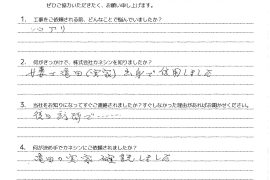 ぜひご協力いただきたく、お願い申し上げます。
1. 工事をご依頼される前、どんなことで悩んでいましたか?
シロアリ
2. 何がきっかけで、株式会社カネシンを知りましたか?
で信用しました
3. 当社をお知りになってすぐご連絡されましたか?すぐしなかった理由があればお聞かせください。
後日訪問で‥‥‥
4. 何が決め手でカネシンにご依頼されましたか?
の実家確認しました